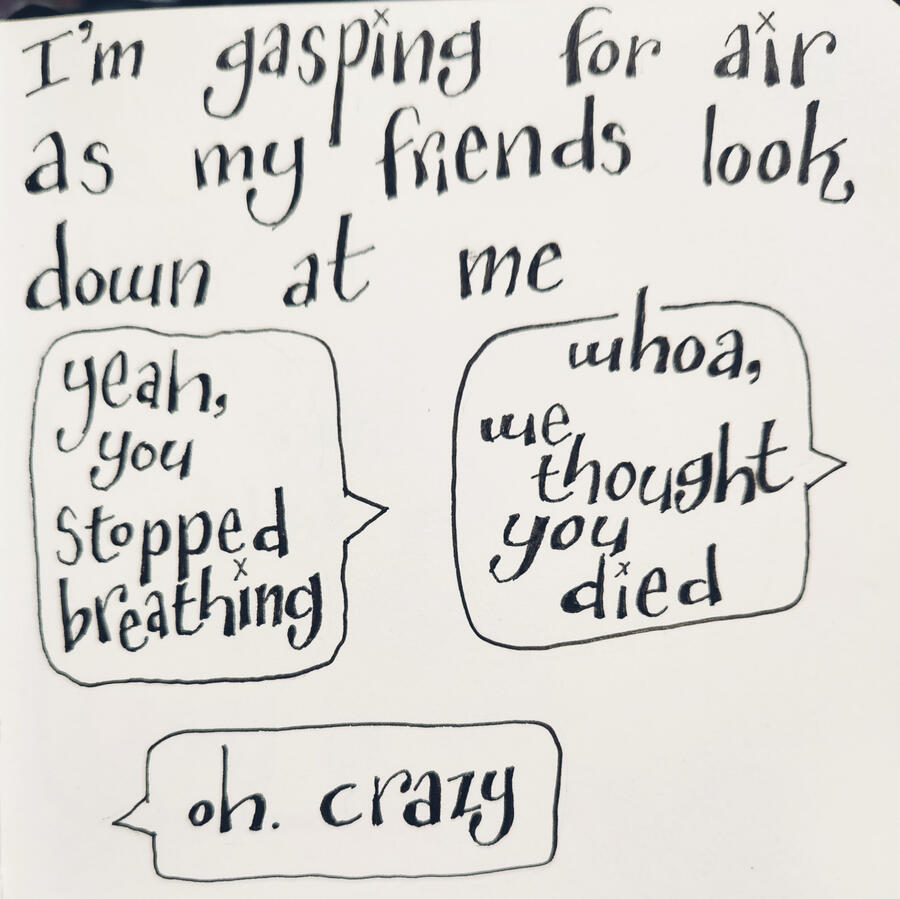 I'm gasping for air
as my friends look
down at me
yeah,
you
stopped
breathing
whoa,
we
thought
you
died
oh. crazy